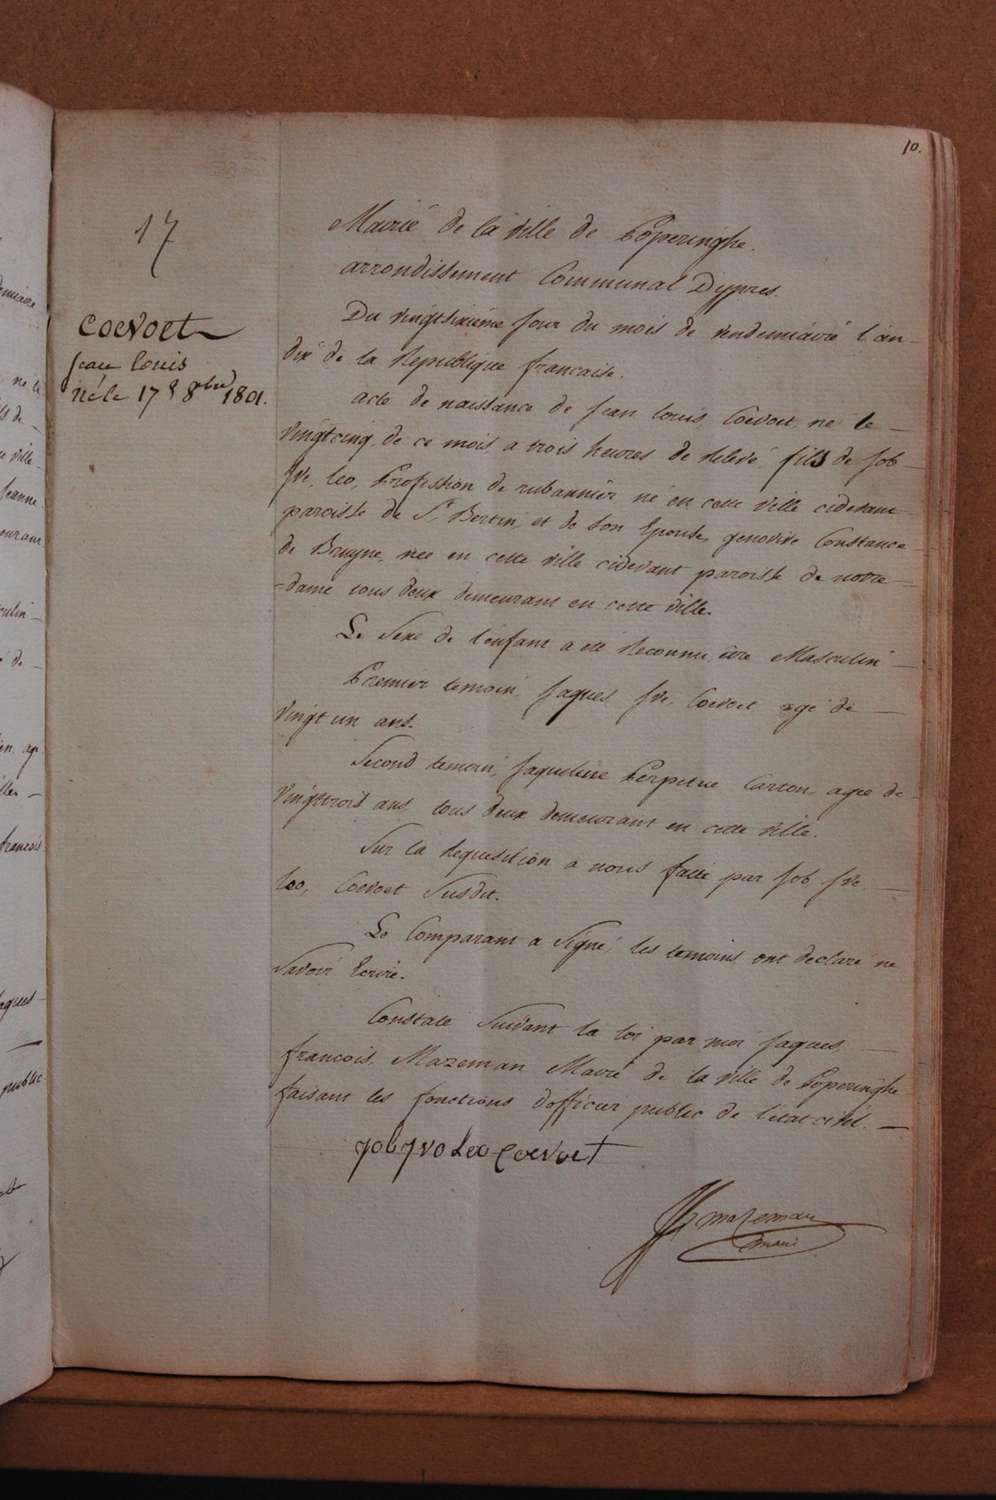 10.
17
Coevoet
Jean Louis
né le 17 8bre 1801.
Mairie de la ville de Poperinghe.
arrondissement Communal Dypres.
Du vingtsixième jour du mois de vendemiaire l'an
dix de la Republique francaise.
acte de naissance de Jean Louis, Coevoet, né le
vingtcinq de ce mois, a trois heures de relevé, fils de Job
Ive, Leo, Profession de rubannier né en cette ville cidevant
paroisse de St Bertin, et de son Epouse, genovive Constance
de Bruyne, née en cette ville cidevant paroisse de notre
-dame tous deux demeurant en cette ville.
Le Sexe de l'enfant a été Reconnu, être Masculin
Premier temoin, Jaques Ive, Coevoet agé de
vingt un ans.
Second temoin, Jaqueline Perpetue Carton, agée de
vingttrois ans tous deux demeurant en cette ville.
Sur la Requisition a nous faite par Job Ive
Leo, Coevoet Susdit.
Le Comparant a Signé, les temoins ont declaré ne
Savoir Ecrire.
Constaté Suivant la loi par moi Jaques,
francois, Mazeman Maire de la ville de Poperinghe
faisant les fonctions d'officier public de l'etat civil.
Job Jvo Leo Coevoet
Mazeman
maire